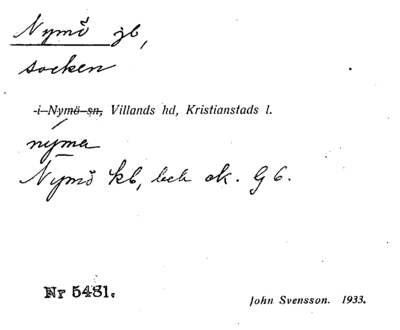 Nymö jb,
socken
i Nymö sn, Villands hd, Kristianstads l.
nýma
Nymö kb, beb ek. G 6.
Nr 5481.
John Svensson. 1933.